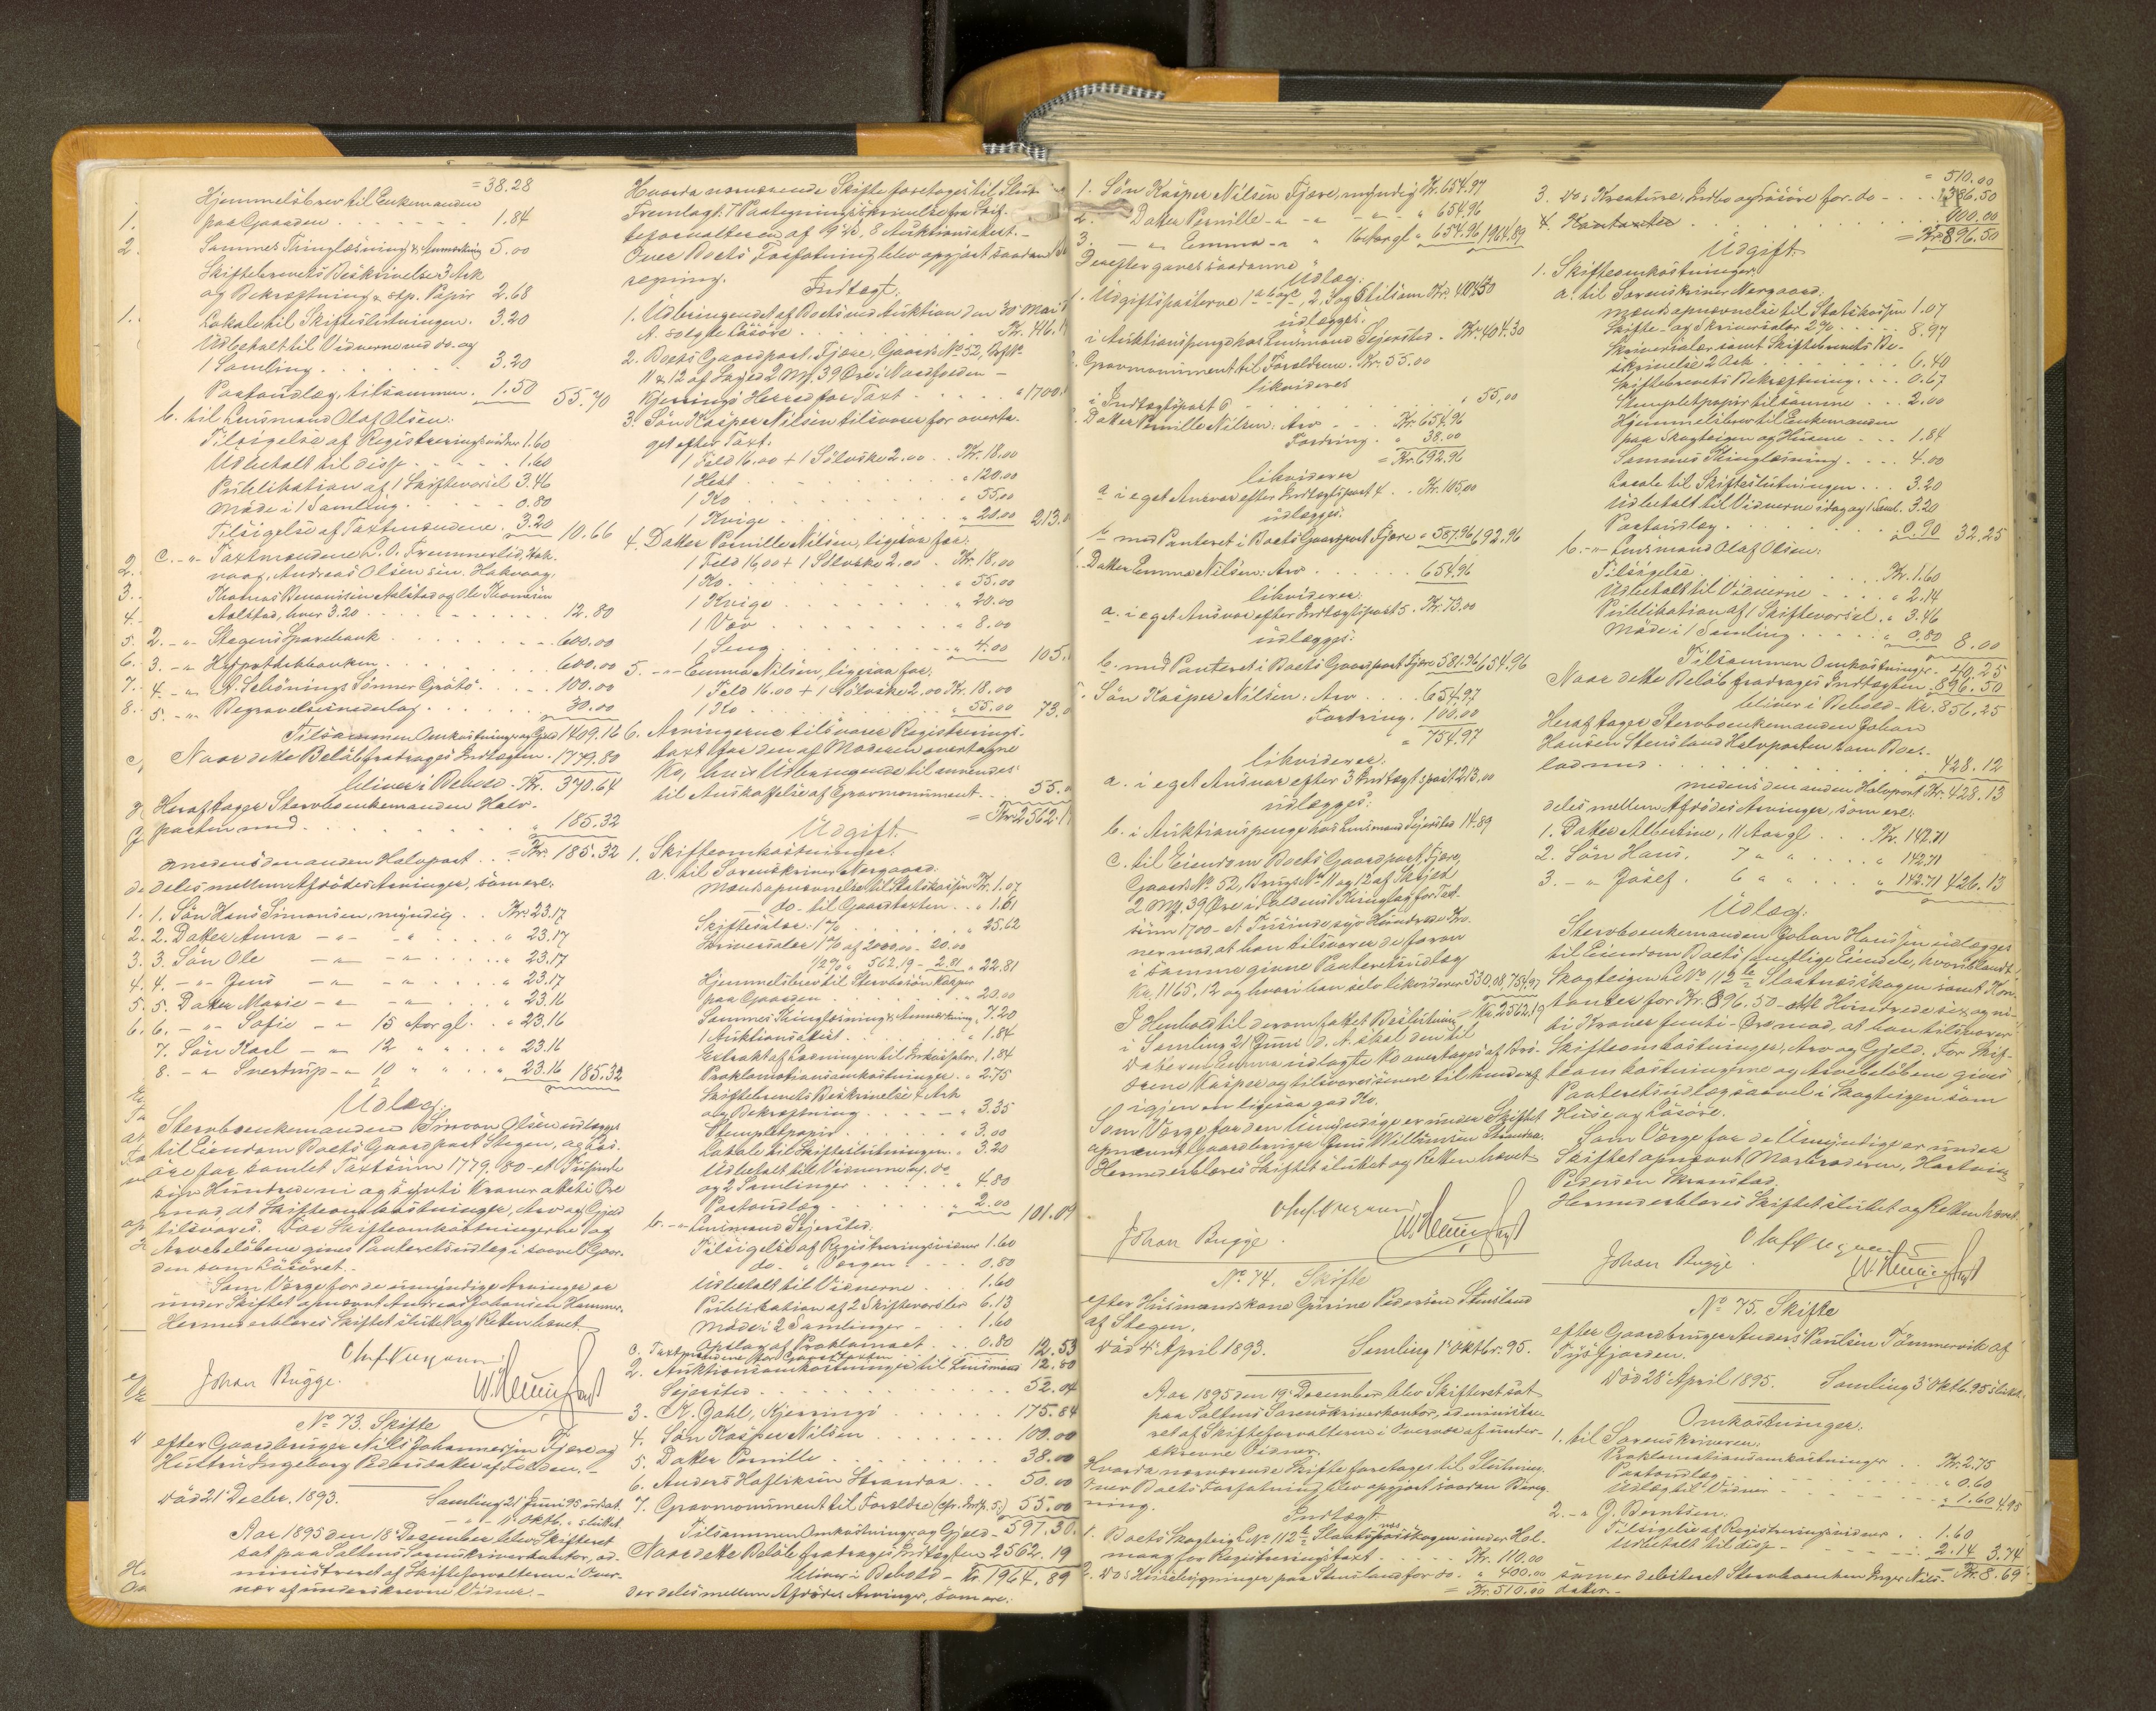 = 38.28
Hjemmelsbrev til Enkemanden
paa Gaarden . . . . 1.84
Sammes Tinglæsning & Anmærkning 5.00
Skiftebrevets Beskrivelse 3 Ark
og Bekræftning & stp. Papir 2.68
Lokale til Skifteslutningen. 3.20
Udbetalt til Vidnerne ved do. og
1 Samling . . . . 3.20
Portoudlæg, tilsammen. 1.50 55.70
b. til Lensmand Olaf Olsen:
Tilsigelse af Registreringsvidner 1.60
Udbetalt til disse . . . 1.60
Publikation af 1 Skiftevarsel 3.46
Møde i 1 Samling . . . 0.80
Tilsigelse af Taxtmændene. 3.20 10.66
c. -"- Taxtmændene
Andreas Olsen sen. Hakvaag,
Thomas Benonisen Aalstad og Ole Thomesen
Aalstad, hver 3.20 . . . 12.80
2. -"- Stegens Sparebank . . . 600.00
3. -"- Hypothekbanken . . . 600.00
4. -"- A. Schönings Sønner Grøtø . . 100.00
5. -"- Begravelsesnedlæg . . . 30.00
Tilsammen Omkostninger og Gjeld 1409.16
Naar dette Beløb fradrages Indtægten. 1779.80
bliver i Behold - Kr. 370.64
Heraf tager Stervboenkemanden Halv-
parten med . . . " 185.32
medens den anden Halvpart . . = Kr. 185.32
deles mellem Afdødes Arvinger, som ere:
1. Søn Hans Simonsen, myndig . . Kr. 23.17
2. Datter Anna -"- -"- . . " 23.17
3. Søn Ole -"- -"- . . " 23.17
4. -"- Jens -"- -"- . . " 23.17
5. Datter Marie -"- -"- . . " 23.16
6. -"- Sofie -"- 15 Aar gl. . " 23.16
7. Søn Karl -"- 12 " " . . " 23.16
8. -"- Snertrup -"- 10 " " . . " 23.16 185.32
Udlæg:
Stervboenkemanden Simon Olsen udlægges
til Eiendom Boets Gaardpart Stegen, og Løs-
øre for samlet Taxtsum 1779.80 - et Tusinde
syv Hundrede ni og sytti Kroner otteti Øre
mod, at Skifteomkostninger, Arv og Gjeld
tilsvares. For Skifteomkostningerne og
Arvebeløbene gives Panteretsudlæg i saavel Gaar-
den som Løsøret.
Som Værge for de umyndige Arvinger er
under Skiftet opnævnt Andreas Johansen Hammer.
Hermed erklæres Skiftet sluttet og Retten hævet.
Johan Bugge.
No 73. Skifte
efter Gaardbruger Nils Johannessen Fjære og
Hustru Ingeborg Pedersdatter af Folden. -
død 21' Decbr. 1893. Samling 21' Juni 95 udsat.
-"- 1' Oktb. " sluttet.
Aar 1895 den 18' Desember blev Skifteret
sat paa Saltens Sorenskriverkontor, ad-
ministreret af Skifteforvalteren i Over-
vær af underskrevne Vidner. -
Hvorda nærværende Skifte foretages til Slut-
Fremlagt: 7 Paategningsskrivelse fra Skif-
teforvalteren af 19' ds., 8 Auktionsextrt. -
Over Boets Forfatning blev opgjort saadan
regning.
Indtægt.
1. Udbringendet af Boets ved Auktion den 30' Mai
A. solgte Løsøre . . . Kr. 416.
2. Boets Gaardpart, Fjære, Gaards No 52, Brugs No
11 & 12 af Skyld 2 Mk. 39 Øre i Nordfolden -
Kjerringø Herred for Taxt . . . " 1700.
3. Søn Kasper Nilsen tilsvarer for overta-
get efter Taxt.
1 Feld 16.00 + 1 Sølvske 2.00 . . Kr. 18.00
1 Hest . . . " 120.00
1 Ko . . . " 55.00
1 Kvige . . . " 20.00 213.0
4. Datter Pernille Nilsen, ligesaa for:
1 Feld 16,00 + 1 Sølvske 2.00 . Kr. 18.00
1 Ko . . . " 55.00
1 Kvige . . . " 20.00
1 Væv . . . " 8.00
1 Seng . . . " 4.00 105.
5. -"- Emma Nilsen, ligesaa for:
1 Feld 16.00 + 1 Sølvske 2.00 Kr. 18.00
1 Ko . . . " 55.00 73.0
6. Arvingerne tilsvarer Registrerings-
taxt for den af Moderen overtagne
Ko, hvis Udbringende til anvendes
til Anskaffelse af Gravmonument . . 55.
= Kr. 2562.1
Udgift.
1. Skifteomkostninger:
a. til Sorenskriver Nergaard:
Mændsopnævnelse til Statskassen Kr. 1.07
do. til Gaardtaxten . . " 1.61
Skiftesalær: 1% . . . " 25.62
Skriversalær 1% af 2000,00 - 20.00
1/2% " 562.19 - 2.81 " 22.81
Hjemmelsbrev til Stervbosøn Kasper
paa Gaarden . . . " 20.00
Sammes Thinglæsning & Anmærkning " 7.20
1 Auktionsattest . . . " 1.84
Extrakt af Losningen til Inkassator . 1.84
Proklamationsomkostninger . " 2.75
Skiftebrevets Beskrivelse 4 Ark
og Bekræftning . . . " 3.35
Stempletpapir . . . " 3.00
Lokale til Skifteslutningen. . " 3.20
Udbetalt til Vidnerne og do
og 2 Samlinger . . . " 4.80
Portoudlæg . . . 2.00 101.09
b. -"- Lensmand Sejersted:
Tilsigelse af Registreringsvidner 1.60
do. " Værgen . . . 0.80
Udbetalt til Vidnerne . . 1.60
Publikation af 2 Skiftevarsler 6.13
Møde i 2 Samlinger . . 1.60
Opslag af Proklamaet . . 0.80 12.53
c. Taxtmændene for Gaardtaxten . . . 12.80
2. Auktionsomkostninger til Lensmand
Sejersted . . . 52.04
3. K. Zahl, Kjerringø . . . 175.84
4. Søn Kasper Nilsen . . . 100.00
5. Datter Pernille . . . 38.00
6. Anders Hafliksen Strandaa . . 50.00
7. Gravmonument til Forældre (cfr. Indtp. 5.) 55.00
Tilsammen Omkostninger og Gjeld - 597.30.
Naar dette Beløb fradrages Indtægten 2562.19
bliver i Behold - Kr. 1964.89
der deles mellem Afdødes Arvinger, som ere:
1. Søn Kasper Nilsen Fjære, myndig Kr. 654.97
2. Datter Pernille -"- -"- -"- " 654.96
3. -"- Emma -"- " 16 Aar gl. " 654.96 1964.89
Derefter gaves saadanne
Udlæg:
1. Udgiftsposterne 1 a b og c, 2, 3 og 6 tilsam Kr. 404.30
udlægges:
i Auktionspenge hos Lensmand Sejersted . Kr. 404.30
Gravmonument til Forældrene. Kr. 55.00
likvideres
i Indtægtspost 6 . . . " 55,00
Datter Pernille Nilsen: Arv . . . Kr. 654.96
Fordring . " 38.00
= Kr. 692.96
likviderer
a i eget Ansvar efter Indtægtspost 4 . . Kr. 105,00
udlægges:
b med Panteret i Boets Gaardpart Fjære " 587.96 692.96
Datter Emma Nilsen: Arv . . . 654.96
likviderer:
a. i eget Ansvar efter Indtægtspost 5. Kr. 73.00
udlægges:
b. med Panteret i Boets Gaardpart Fjære 581.96 654.96
Søn Kasper Nilsen: Arv . . . 654.97
Fordring. 100.00
" 754.97
likviderer:
a. i eget Ansvar efter 3 Indtægtspost 213.00
udlægges:
b. i Auktionspenge hos Lensmand Sejersted 11.89
c. til Eiendom Boets Gaardpart, Fjære,
Gaards No 52, Brugs No 11 og 12 af Skyld
2 Mk. 39 Øre i Foldens Thinglag for Taxt-
sum 1700 - et Tusinde syv Hundrede Kro-
ner mod, at han tilsvarer de foran
i samme givne Panteretsudlæg
Kr. 1165,12 og hvori han selv likviderer 530.08, 754.97
= Kr. 2562.19
I Henhold til derom fattet Beslutning
i Samling 21' Juni d. A. skal den til
Datteren Emma udlagte Ko overtages af Bro-
deren Kasper og tilsvares senere til hende
igjen en ligesaa god Ko.
Som Værge for den Umyndige er under Skiftet
opnævnt Gaardbruger Jens Willumsen Strandaa.
Hermed erklæres Skiftet sluttet og Retten hævet
Johan Bugge.
No 74. Skifte
efter Husmandskone Gurine Pedersen Stensland
af Stegen.
død 4' April 1893. Samling 1' Oktbr. 95.
Aar 1895 den 19' Desember blev Skifteret sat
paa Saltens Sorenskriverkontor, administre-
ret af Skifteforvalteren i Overvær af under-
skrevne Vidner.
Hvorda nærværende Skifte foretages til Slutning.
Over Boets Forfatning blev opgjort saadan Bereg-
ning.
Indtægt
1. Boets Skogteig L No 112 Slaatnesskogen under Hol-
maag for Registreringstaxt . . . Kr. 110.00
2. do: Husebygninger paa Stensland for do. . " 400.00
= Kr. 510.00
= 510.00
3. do: Kreature, Indbo og Løsøre for do . . . 386.50
4. Kontanter . . . 100.00
= Kr. 896.50
Udgift:
1. Skifteomkostninger:
a. til Sorenskriver Nergaard:
Mændsopnævnelse til Statskassen 1.07
Skifte- og Skriversalær 2% . . . 8.97
Skriversalær samt Skiftebrevets Be-
skrivelse 2 Ark . . . 6.40
Skiftebrevets Bekræftning . . . 0.67
Stempletpapir tilsamme . . . 2.00
Hjemmelsbrev til Enkemanden
paa Skogteigen og Husene . . . 1.84
Sammes Thinglæsning . . . 4.00
Locale til Skifteslutningen . . . 3.20
Udbetalt til Vidnerne idag og 1 Saml. 3.20
Portoudlæg . . . 0.90 32.25
b. -"- Lensmand Olaf Olsen:
Tilsigelse . . . Kr. 1.60
Udbetalt til Vidnerne . . . " 2.14
Publikation af 1 Skiftevarsel . " 3.46
Møde i 1 Samling . . . " 0.80 8.00
Tilsammen Omkostninger . 40.25
Naar dette Beløb fradrages Indtægten 896.50
bliver i Behold - Kr. 856.25
Heraf tager Stervboenkemanden Johan
Hansen Stensland Halvparten som Boes-
lod med . . . 428.12
medens den anden Halvpart Kr. 428.13
deles mellem Afdødes Arvinger, som ere:
1. Datter Albertine, 11 Aar gl . . . Kr. 142.71
2. Søn Hans, 7 " " . . . " 142.71
3. -"- Josef, 6 " " . . . " 142.71 428.13
Udlæg:
Stervboenkemanden Johan Hansen udlægges
til Eiendom Boets samtlige Eiendele, hvoriblandt
Skogteigen L No 112 Slaatnesskogen samt Kon-
tanter for Kr. 896.50 - otte Hundrede sex og ni-
ti Kroner femti - Øre mod, at han tilsvarer
Skifteomkostninger, Arv og Gjeld. For Skif-
teomkostningerne og Arvebeløbene gives
Panteretsudlæg saavel i Skogteigen som
Huse og Løsøre.
Som Værge for de Umyndige er under
Skiftet opnævnt Morbroderen, Hartvig
Pedersen Skranstad.
Hermed erklæres Skiftet sluttet og Retten hævet.
Johan Bugge.
No 75. Skifte
efter Gaardbruger Anders Paulsen Tømmervik af
Tysfjorden.
død 28' April 1895. Samling 3' Oktb. 95 sluttet.
Omkostninger:
1. til Sorenskriveren:
Proklamationsomkostninger . . . Kr. 2.75
Portoudlæg . . . " 0.60
Udlæg til Vidner . . . " 1.60 4.95
2. -"- J. Berntsen:
Tilsigelse af Registreringsvidner . . 1.60
Udbetalt til disse . . . 2.14 3.74
som er debiteret Stervboenken Inger Nils- = Kr. 8.69
datter. -